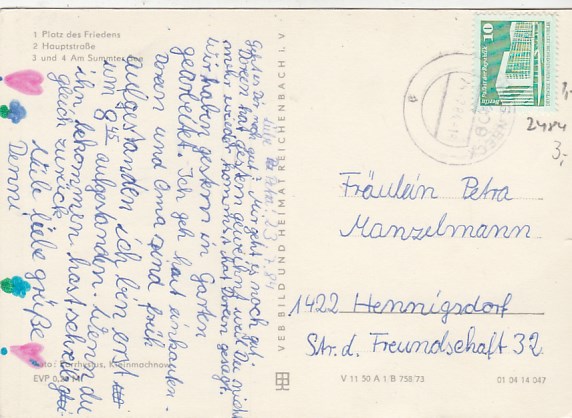 1 Platz des Friedens
2 Hauptstraße
3 und 4 Am Summter See
Liebe Petra! 23.7.84
Gehts dir noch gut? Mir geht es noch gut.
Doren hat gestern geweint weil du nicht
mehr wieder kommen hat Doren gesagt.
wir haben gestern in Garten
gearbeitet. Ich geh heut einkaufen.
Doren und Oma sind früh
aufgestanden ich bin erst
um 8 45 aufgestanden. Wenn du
ihn bekommen hast schreib
gleich zurück.
Viele liebe grüße
Denni
Kleinmachnow
EVP 0,20 M
VEB BILD UND HEIMAT REICHENBACH I. V
V 11 50 A 1/B 758/73
01 04 14 047
10
Palast der Republik
Berlin
2484
3,-
Fräulein Petra
Manzelmann
1422 Hennigsdorf
Str. d. Freundschaft 32